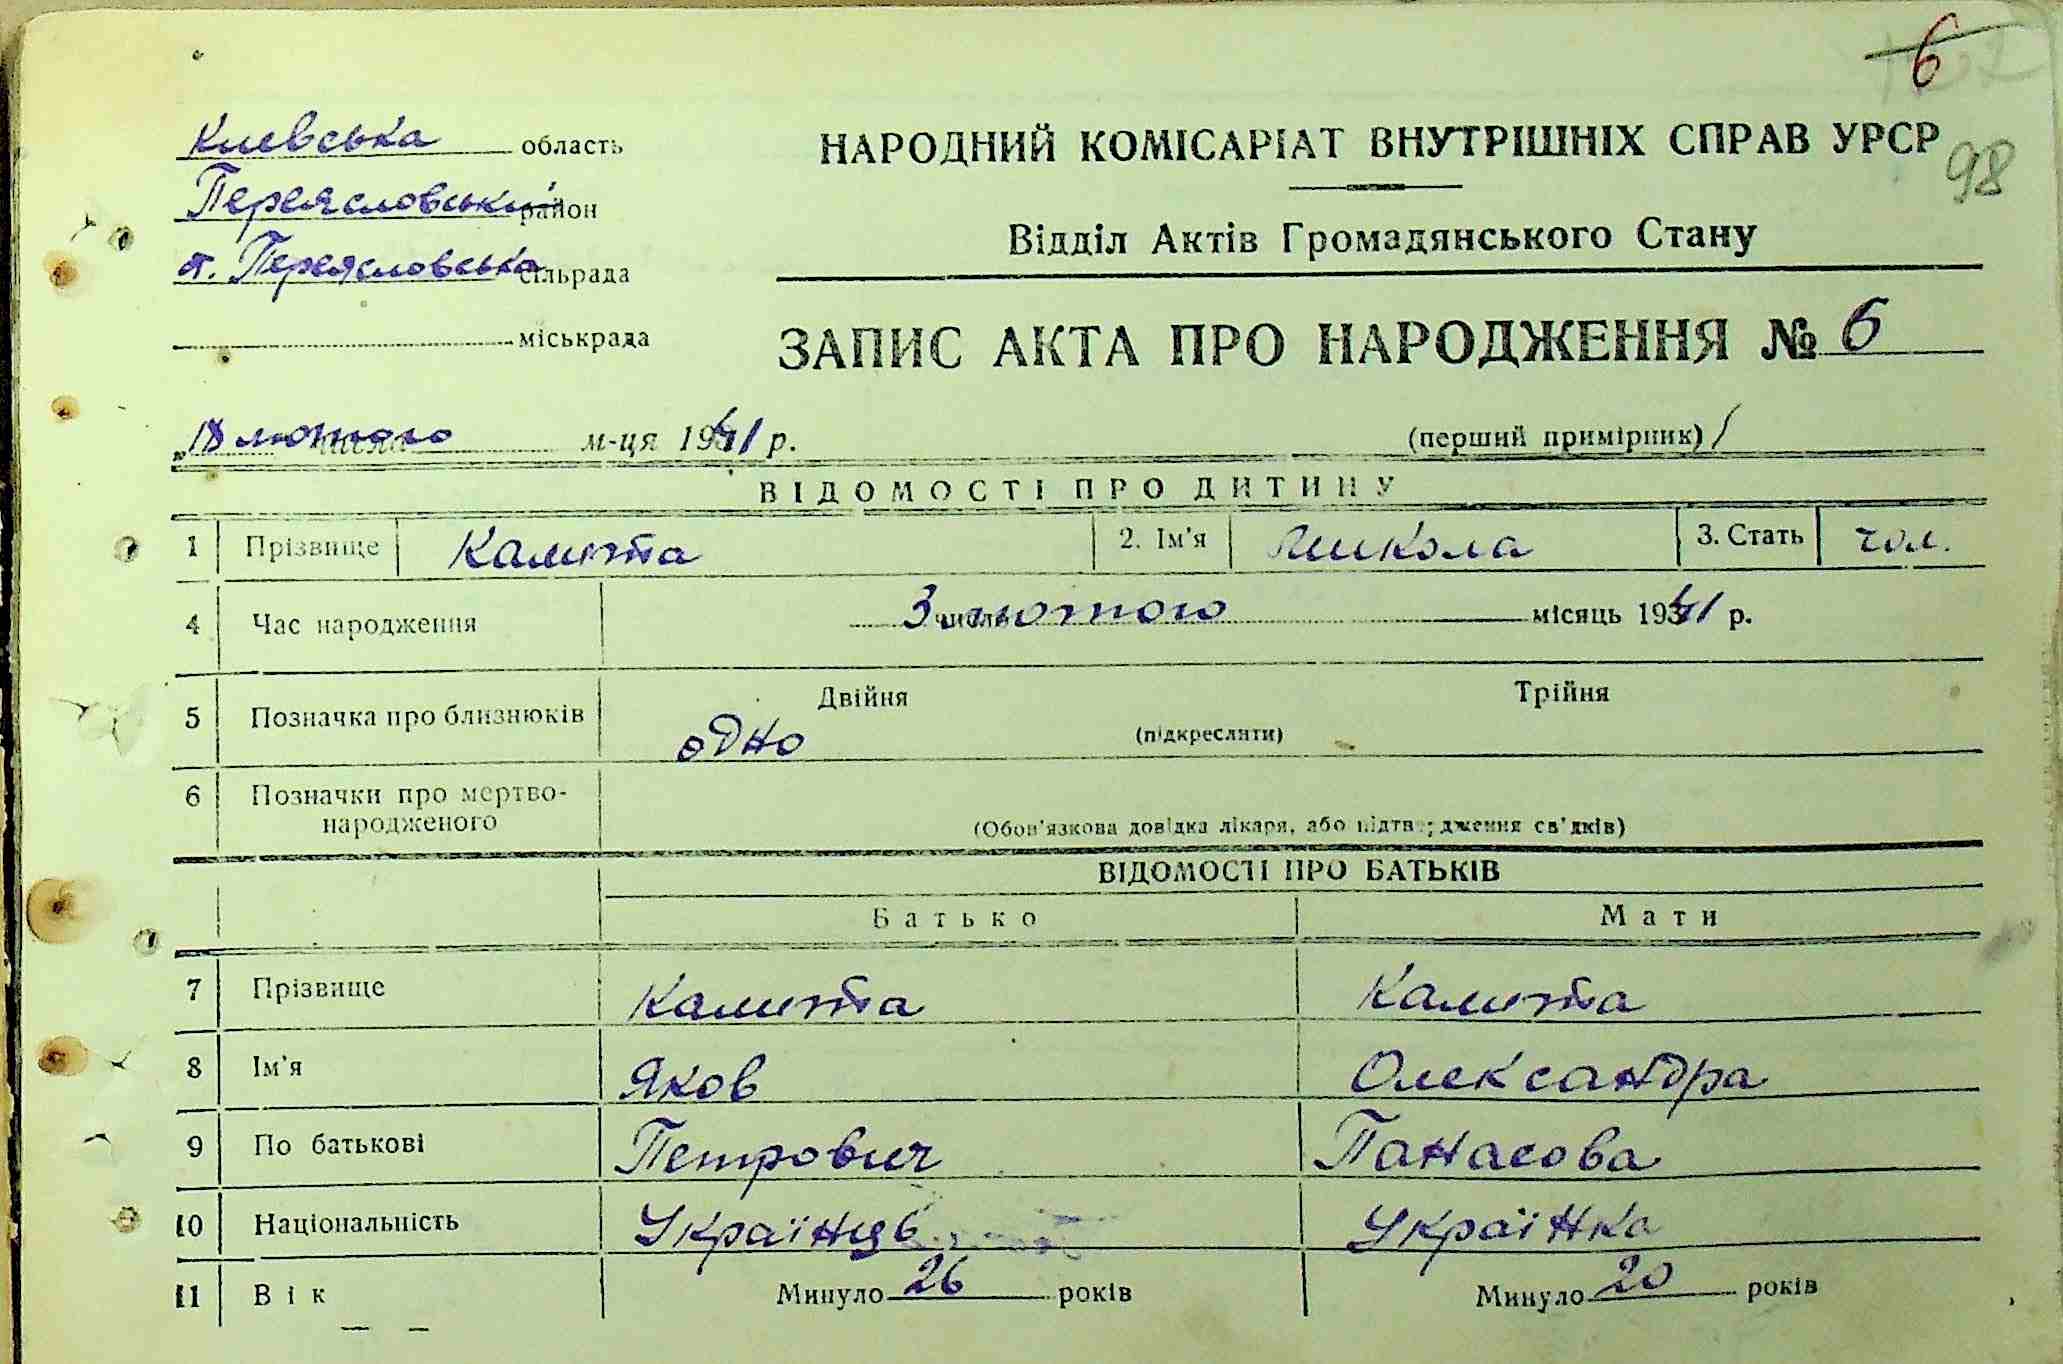 6
Киевська область
НАРОДНИЙ КОМІСАРІАТ ВНУТРІШНІХ СПРАВ УРСР
98
Переясловський район
Відділ Актів Громадянського Стану
ст. Переясловська сільрада
міськрада
ЗАПИС АКТА ПРО НАРОДЖЕННЯ № 6
18 лютого числа м-ця 1941 р. (перший примірник)
ВІДОМОСТІ ПРО ДИТИНУ
1 Прізвище Калита 2. Ім'я Микола 3. Стать чол.
4 Час народження 3 числа лютого місяць 1941 р.
5 Позначка про близнюків Двійня Трійня
одно (підкресляти)
6 Позначки про мертво-
народженого (Обов'язкова довідка лікаря, або підтвердження св'дків)
ВІДОМОСТІ ПРО БАТЬКІВ
Батько Мати
7 Прізвище Калита Калита
8 Ім'я Яков Олександра
9 По батькові Петрович Панасова
10 Національність Українць Українка
11 Вік Минуло 26 років Минуло 20 років